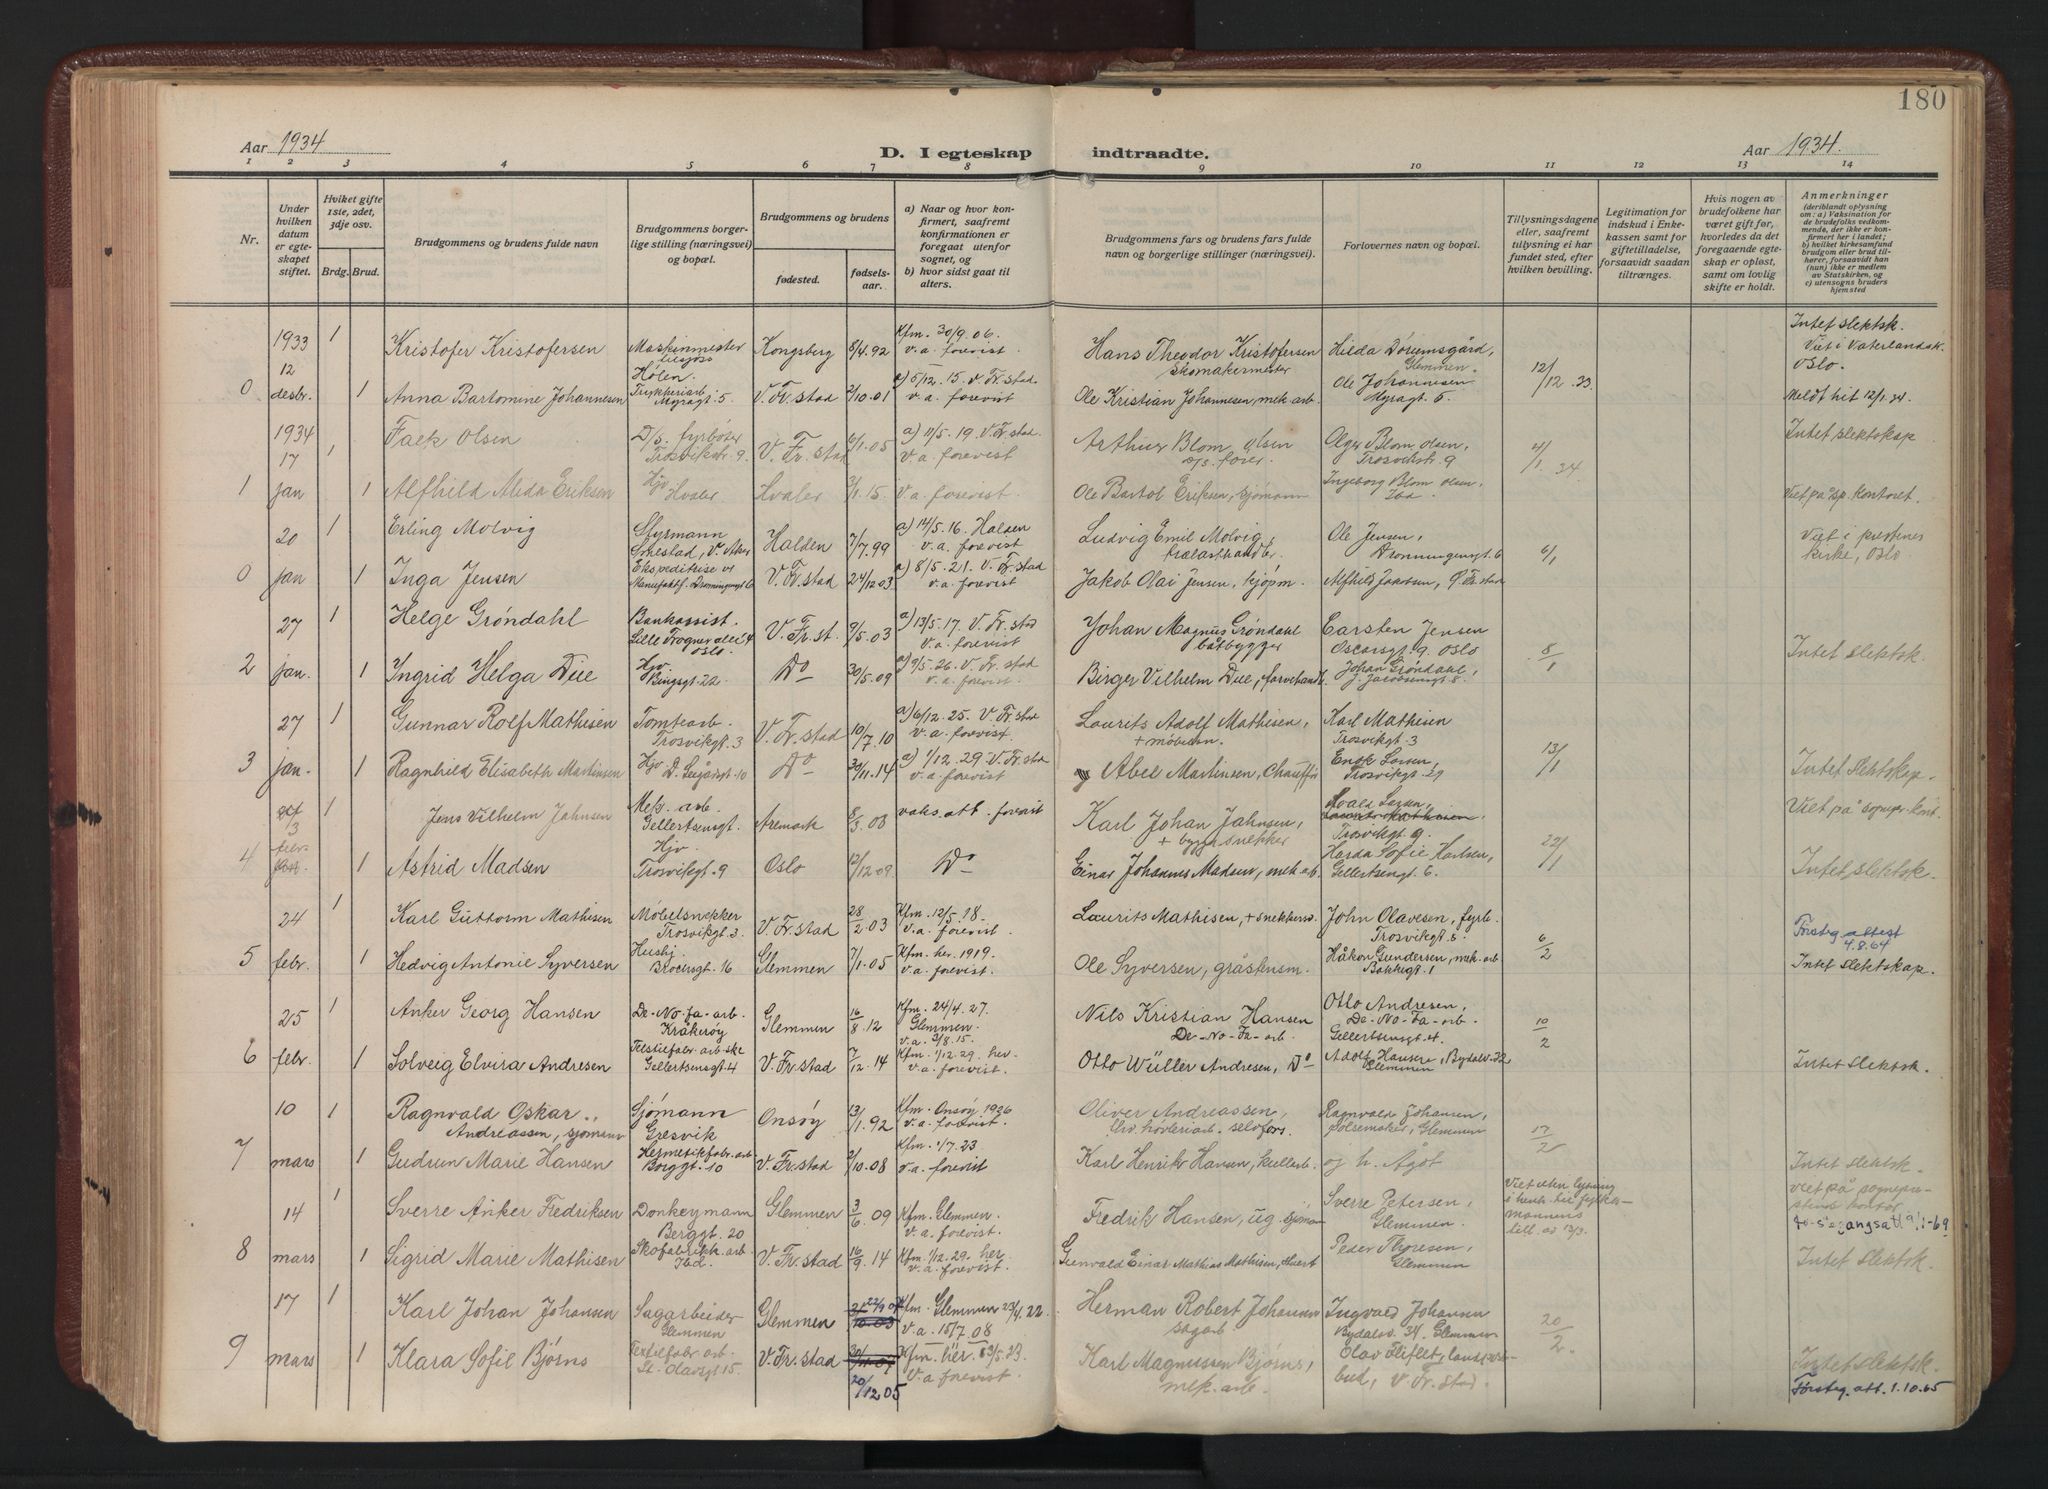 180
Aar 1934
D. I egteskap indtraadte.
Aar 1934.
1 2 3 4 5 6 7 8 9 10 11 12 13 14
Nr.
Under hvilken datum er egteskapet stiftet.
Hvilket gifte 1ste, 2det, 3dje osv.
Brdg. Brud.
Brudgommens og brudens fulde navn
Brudgommens borgerlige stilling (næringsvei) og bopæl.
Brudgommens og brudens
fødested.
fødselsaar.
a) Naar og hvor konfirmert, saafremt konfirmationen er foregaat utenfor sognet, og
b) hvor sidst gaat til alters.
Brudgommens fars og brudens fars fulde navn og borgerlige stillinger (næringsvei).
Forlovernes navn og bopæl.
Tillysningsdagene eller, saafremt tillysning ei har fundet sted, efter hvilken bevilling.
Legitimation for indskud i Enkekassen samt for giftetilladelse, forsaavidt saadan tiltrænges.
Hvis nogen av brudefolkene har været gift før, hvorledes da det foregaaende egteskap er opløst, samt om lovlig skifte er holdt.
Anmerkninger
(deriblandt oplysning om: a) Vaksination for de brudefolks vedkommende, der ikke er konfirmert her i landet;
b) hvilket kirkesamfund brudgom eller brud tilhører, forsaavidt han (hun) ikke er medlem av Statskirken, og
c) utensogns bruders hjemsted
1933 12 1 Kristofer Kristofersen Maskinmester Kongsberg 8/4.92 Kfm. 30/9.06. v.a. forevist Hans Theodor Kristofersen skomakermester Hilda Dørumsgård, Glemmen. 12/12.33 Intet slektsk. Viet i Vaterlandsk. Oslo.
0 desbr. 1 Anna Bartomine Johannesen Myragt. 5 V. Fr.stad 2/10.01 a) 5/12.15. V. Fr.stad. v.a. forevist Ole Kristian Johannesen, mek.arb. Ole Johannesen Myragt 5. Meldt hit 12/1.34.
1934 17 1 Falk Olsen D/s. fyrbøter Trosvikstr. 9 V. Fr.stad 6/1.05 a) 11/5.19. V. Fr.stad. v.a. forevist Arthur Blom Olsen Olger Blom Olsen, Trosvikstr. 9 4/1.34 Intet slektskap
1 jan 1 Alfhild Alida Eriksen Hjv. Hvaler Hvaler 2/1.15. v.a. forevist Ole Bartol Eriksen, sjømann Ingeborg Blom Olsen, Ibd. Viet på sp. kontoret.
20 1 Erling Molvig Styrmann Smestad, V. Aker Halden 7/7.99 a) 14/5.16. Halden v.a. forevist Ludvig Emil Molvig, trælasthandl. Ole Jensen, Dronningensgt 6 6/1 Viet i kirke, Oslo
0 jan 1 Inga Jensen Ekspeditrise v/ Manufaktf. Dronningensgt 6 V. Fr.stad 24/12 03 a) 8/5.21. V. Fr.stad v.a. forevist Jakob Olai Jensen, kjøpm. Alfhild Jakobsen, Fr.stad
27 1 Helge Grøndahl Bankassist. Lille Frogner alle 4 Oslo. V. Fr.st. 9/5.03 a) 13/5.17. V. Fr.stad v.a. forevist Johan Magnus Grøndahl båtbygger Carsten Jensen Oscarsgt. 9. Oslo 8/1
2 jan. 1 Ingrid Helga Due Hjv. Bingsgt. 22 Do 30/5.09 a) 9/5.26. V. Fr.stad v.a. forevist Birger Vilhelm Due, farvehandl. Johan Grøndahl, J. Jacobsensgt 8. Intet slektsk.
27 1 Gunnar Rolf Mathisen Tomtearb. Trosvikgt. 3 V. Fr.stad 10/7.10 a) 6/12.25. V. Fr.stad v.a. forevist Laurits Adolf Mathisen, + møbelsn. Karl Mathisen Trosvikgt. 3 13/1
3 jan. 1 Ragnhild Elisabeth Martinsen Hjv. Seiådsgt. 10 Do 30/11.14 a) 1/12.29. V. Fr.stad v.a. forevist Abel Martinsen, Chauffør Enok Larsen, Trosvikgt. 29 Intet slektskap.
3 1 Jens Vilhelm Jahnsen Mek. arb. Gellertsensgt. Aremark 8/3.08 vaks. att. forevist Karl Johan Jahnsen, + byggsnekker Larsen, Trosvikgt. 9. 22/1 Viet på sogneprkont.
4 febr. 1 Astrid Madsen Hjv. Trosvikgt. 9 Oslo 12/12 09. Do Einar Johannes Madsen, mek. arb. Harda Sofie Karlsen, Gellertsensgt. 6. Intet slektsk.
24 1 Karl Guttorm Mathisen Møbelsnekker Trosvikgt. 3 V. Fr.stad 28/2.03 Kfm. 12/5.18. v.a. forevist Laurits Mathisen, + snekkersv. John Olavesen, fyrb. Trosvikgt. 5. 6/2 Førsteg.attest 4.8.64
5 febr. 1 Hedvig Antonie Syversen Hushj. Brocisgt. 16 Glemmen 7/1.05 Kfm. her. 1919. v.a. forevist. Ole Syversen, gråstensm. Håkon Gundersen, mek. arb. Bakkegt. 1 Intet slektskap.
25 1 Anker Georg Hansen De-No-Fa-arb. Kråkerøy Glemmen 16/8.12 Kfm. 24/4.27. Glemmen. v.a. 3/8.15. Nils Kristian Hansen De-No-Fa-arb. Otto Andresen, De-No-Fa-arb. Gellertsensgt. 4. 10/2
6 febr. 1 Solveig Elvira Andresen Gellertsensgt. 4 V. Fr.stad 7/12.14 Kfm. 1/12.29. her. v.a. forevist. Otto Wüller Andresen, Do Adolf Hansen, Bydalsv. 22 Glemmen Intet slektsk.
10 1 Ragnvald Oskar Andreassen, sjømann Sjømann Gresvik Onsøy 13/1.92 Kfm. Onsøy 1926 v.a. forevist. Oliver Andreassen, høvleriarb. Ragnvald Johansen, pølsemaker, Glemmen 17/2
7 mars 1 Gudrun Marie Hansen Hermetikfabr. arb. Borggt. 10 V. Fr.stad 2/10.08 Kfm. 1/7.23 v.a. forevist Karl Henrik Hansen, og h. Ågot Intet slektsk.
14 1 Sverre Anker Fredriksen Donkeymann Berggt. 20 Glemmen 3/6.09 Kfm. Glemmen. v.a. forevist. Fredrik Hansen, ug. sjømann Sverre Petersen, Glemmen. Viet uten lysning i henh. til fylkesmannens till. av 13/3. viet på sogneprestens kontor
8 mars 1 Sigrid Marie Mathisen Skofabrikk. arb. Ibd. V. Fr.stad 16/9.14 Kfm. 1/12.29. her v.a. forevist. Gunvald Einar Mathias Mathisen, Peder Thoresen, Glemmen Intet slektsk.
17 1 Karl Johan Johansen Sagarbeider Glemmen Glemmen Kfm. Glemmen 23/4.22. v.a. 15/7.08 Herman Robert Johansen sagarb. Ingvald Johansen Bydalsv. 34. Glemmen 20/2.
9 mars 1 Klara Sofie Bjørns Textilfabr. arb. St. Olavsgt 15. V. Fr.stad 20/12 05 Kfm. her. 13/5.23. v.a forevist. Karl Magnussen Bjørns, mek. arb. Olav Fliflet, landpostbud, V. Fr.stad. Intet slektsk. Førsteg. att. 1.10.65